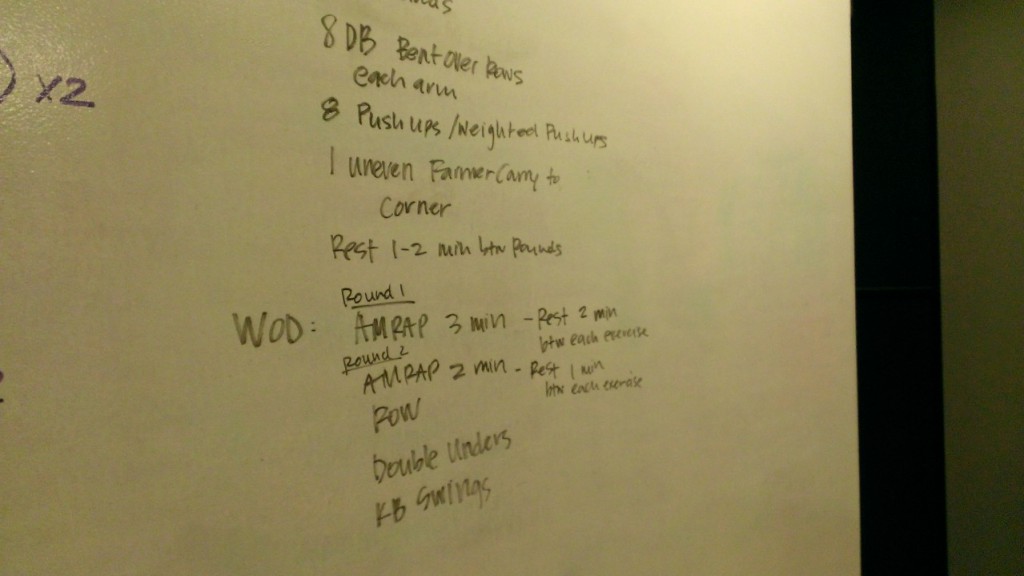 8 DB Bent Over Rows
each arm
x2
8 Push ups / Weighted Push ups
1 uneven Farmer Carry to
Corner
Rest 1-2 min btw Rounds
Round 1
WOD: AMRAP 3 min - Rest 2 min
btw each exercise
Round 2
AMRAP 2 min - Rest 1 min
btw each exercise
ROW
Double Unders
KB Swings